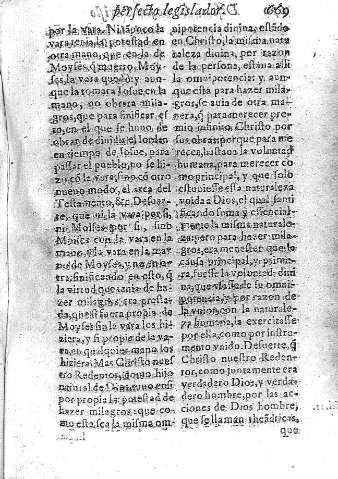 perfecto legislador.
por la vara. Ni tāpoco la
vara tenia la potestad en
otra mano, que en la de
Moyses, q̄ muerto Moy-
ses, la vara quedó, y aun-
que la tomara Iosue, en la
mano, no obrara mila-
gros, que para
en el que se huuo, de
obrar de diuidir el Iordan
en tiempo de Iosue, para
passar el pueblo, no se hi-
zo cō la vara, sino cō otro
nueuo modo, el arca del
Testamento, &c. De suer-
te, que ni la vara por si,
ni Moises por si, sino
Moises con la vara en la
mano, y la vara en la ma-
no de Moyses, y no en o-
tra, sinificando en esto, q̄
la virtud que tenia de ha-
zer milagros, era presta-
da, que si fuera propia de
Moyses sin la vara los hi-
ziera, y si propia de la va-
ra, en qualquier mano los
hiziera. Mas Christo nues
tro Redentor, como hijo
natural de Dios, tuuo en si
por propia la potestad de
hazer milagros: que co-
mo esta sea la misma om-
nipotencia diuina, estādo
en Christo, la misma natu
raleza diuina, por razon
de la persona, estaua allí
la omnipotencia: y aun-
que esta para hazer mila-
gros, se auia de otra ma-
nera, q̄ para merecer pre-
mio Christo por
sus obras porque para me-
recer, bastaua la voluntad
humana, para merecer co
mo principal, y que solo
estuuiesse esta naturaleza
vnida a Dios, el qual santi-
ficando suma y essencial-
mente la misma naturale-
za: pero para hazer mila-
gros, era menester que la
causa principal, y prime-
ra, fuesse la voluntad diui
na, que vsasse de su omni-
potencia, y por razon de
la vnion, con la naturale-
za humana, la exercitasse
por ella, como por instru-
mento vnido. De suerte, q̄
Christo nuestro Reden-
tor, como juntamente era
verdadero Dios, y verda-
dero hombre, por las ac-
ciones de Dios hombre,
que se llaman theādricas,
que